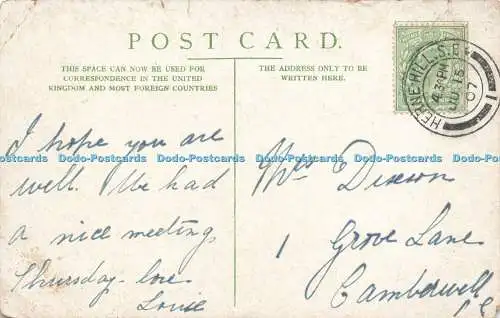 POST CARD.
THIS SPACE CAN NOW BE USED FOR
CORRESPONDENCE IN THE UNITED
KINGDOM AND MOST FOREIGN COUNTRIES
THE ADDRESS ONLY TO BE
WRITTEN HERE.
HERNE HILL. S.E.
4.3 PM
15
07
1
I hope you are
well. We had
a nice meeting
Thursday - love
Louie
Dixson
1 Grove Lane
Camberwell
Dodo-Postcards Dodo-Postcards Dodo-Postcards Dodo-Postcards Dodo-Postcards